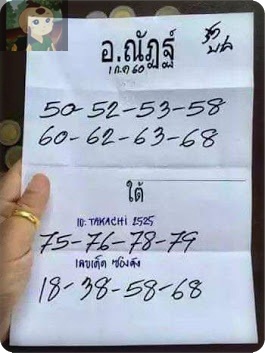 อ.ณัฏฐ์
1 ก.ค 60
50-52-53-58
60-62-63-68
ใต้
ID: TAKACHI 2525
75-76-78-79
เลขเด็ด ซองดัง
18-38-58-68